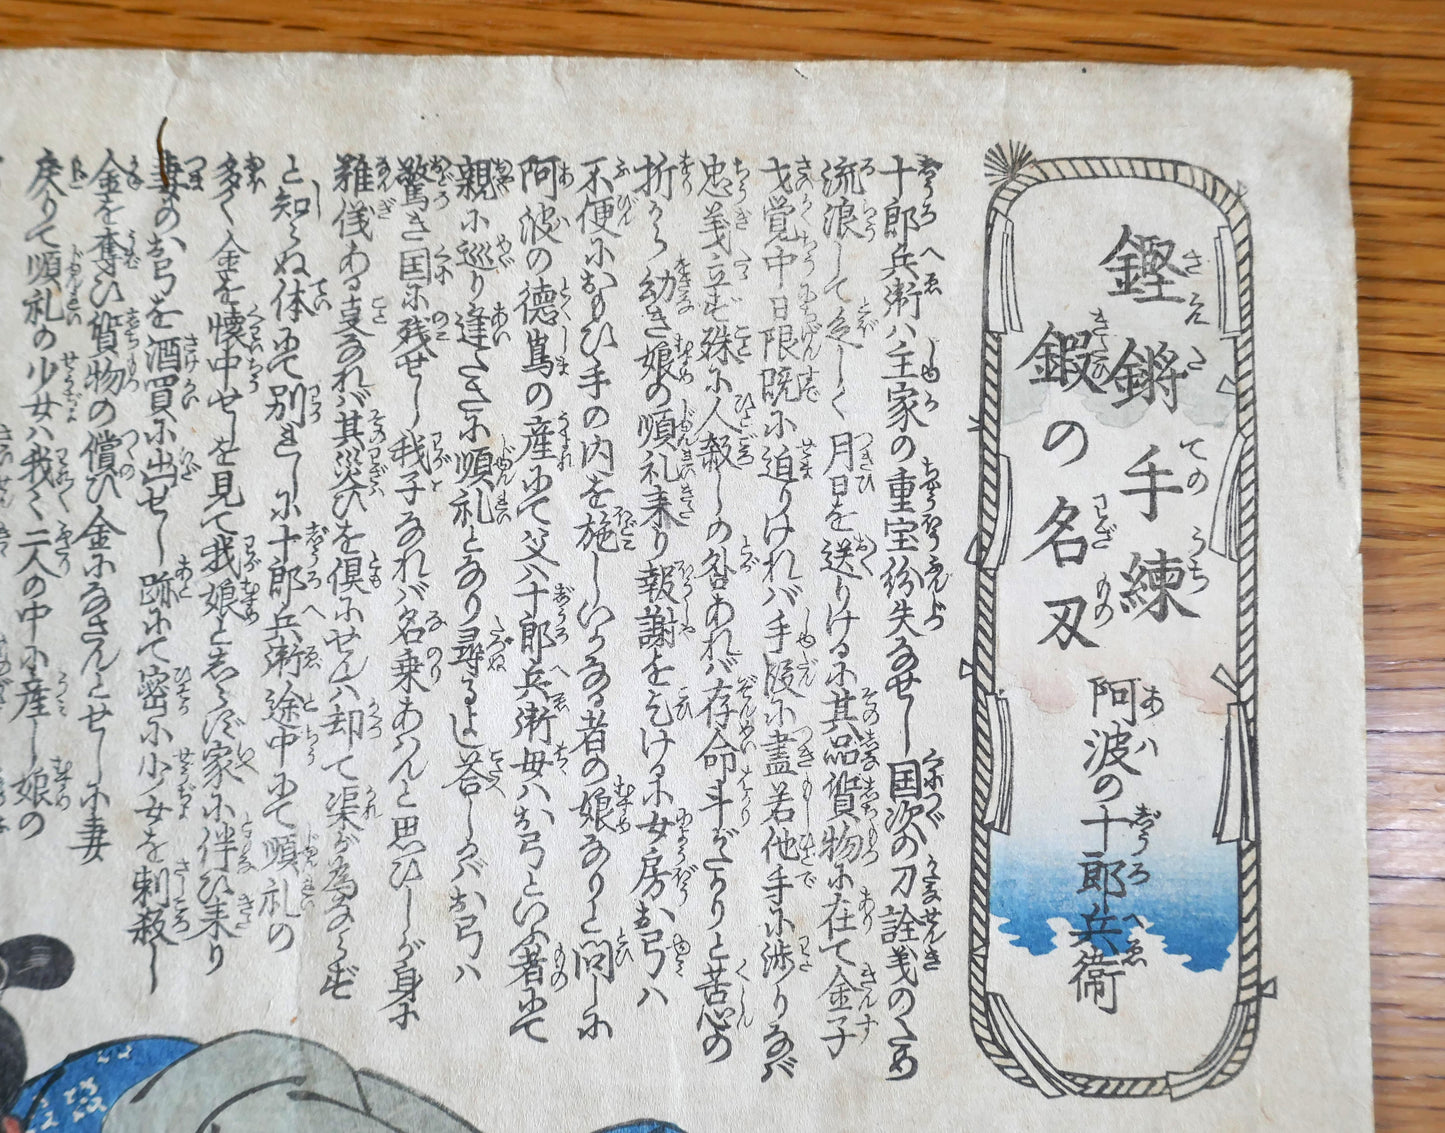 鏗鏘手練
鍛の名刃
阿波の十郎兵衞
十郎兵衛ハ主家の重宝紛失なせし国次の刀詮義のため
流浪して久しく月日を送りける小其品質物小在て金子
才覚中日限既小迫りけれバ手段小盡若他手小渉りなバ
忠義立ず殊小人殺しの咎あれバ存命斗がたかりと苦心の
折から幼き娘の順礼来り報謝を乞ける小女房お弓ハ
不便小おもひ手の内を施しいかなる者の娘なりと問し小
阿波の徳嶌の産にて父ハ十郎兵衛母ハお弓といふ者にて
親小巡り逢たさ小順礼となり尋るよし答しかバお弓ハ
驚き国小残せし我子なれバ名乗あハんと思ひしが身小
難儀ある支なれバ其災ひを倶小せんハ却て渠が為ならず
と知らぬ体にて別れし小十郎兵衛途中にて順礼の
多く金を懐中せしを見て我娘と志らず家小伴ひ来り
妻のお弓を酒買小出せし跡にて密小少女を刺殺し
金を奪ひ質物の償ひ金小なさんとせし小妻
戻りて順礼の少女ハ我々二人の中小産し娘の